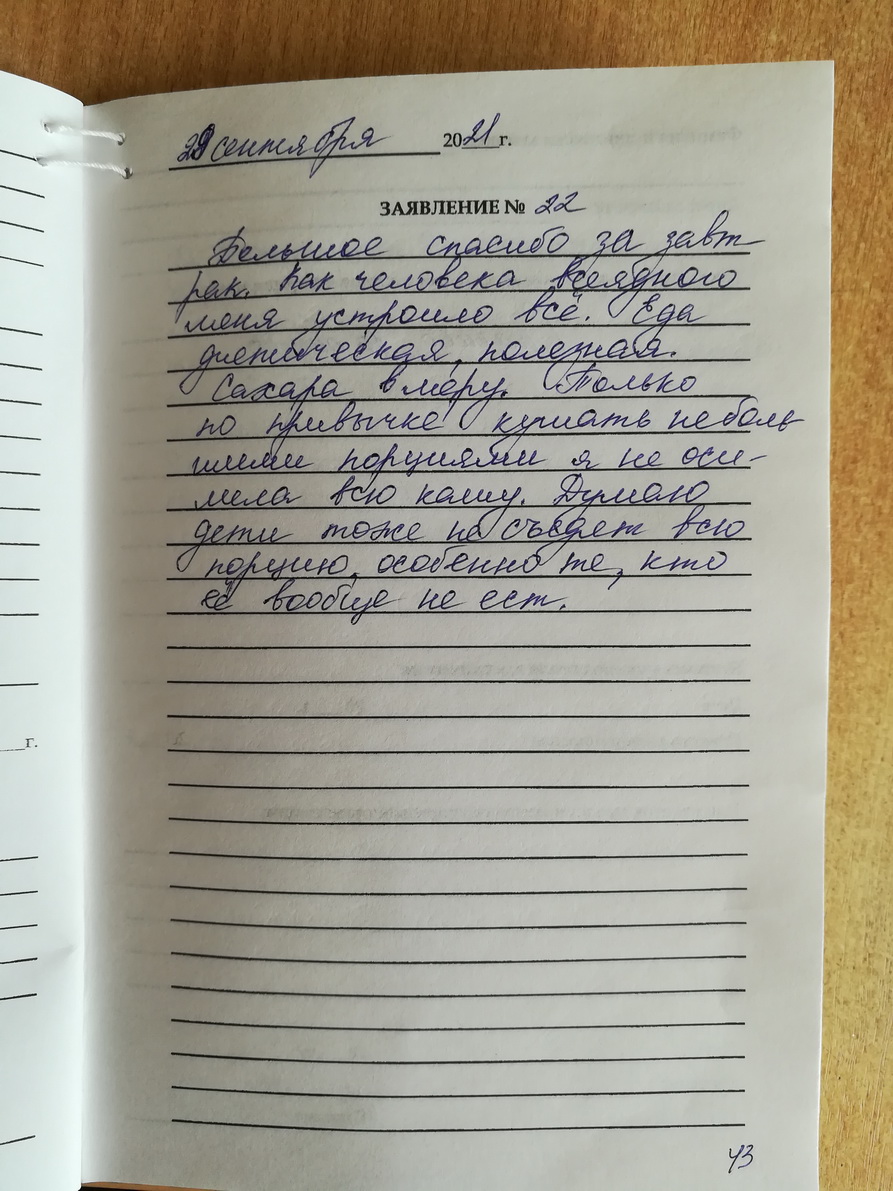 29 сентября 2021 г.
ЗАЯВЛЕНИЕ № 22
Большое спасибо за завт-
рак. Как человека всеядного
меня устроило всё. Еда
диетическая, полезная.
Сахара в меру. Только
по привычке кушать неболь
шими порциями я не оси-
лила всю кашу. Думаю
дети тоже не съедят всю
порцию, особенно те, кто
её вообще не ест.
г.
43